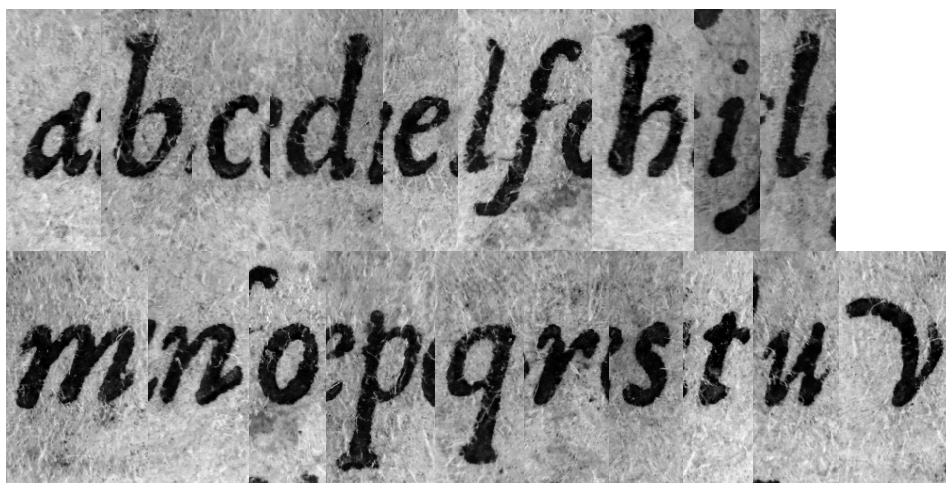 a b c d e lf h i l
m n o p q r s t u v